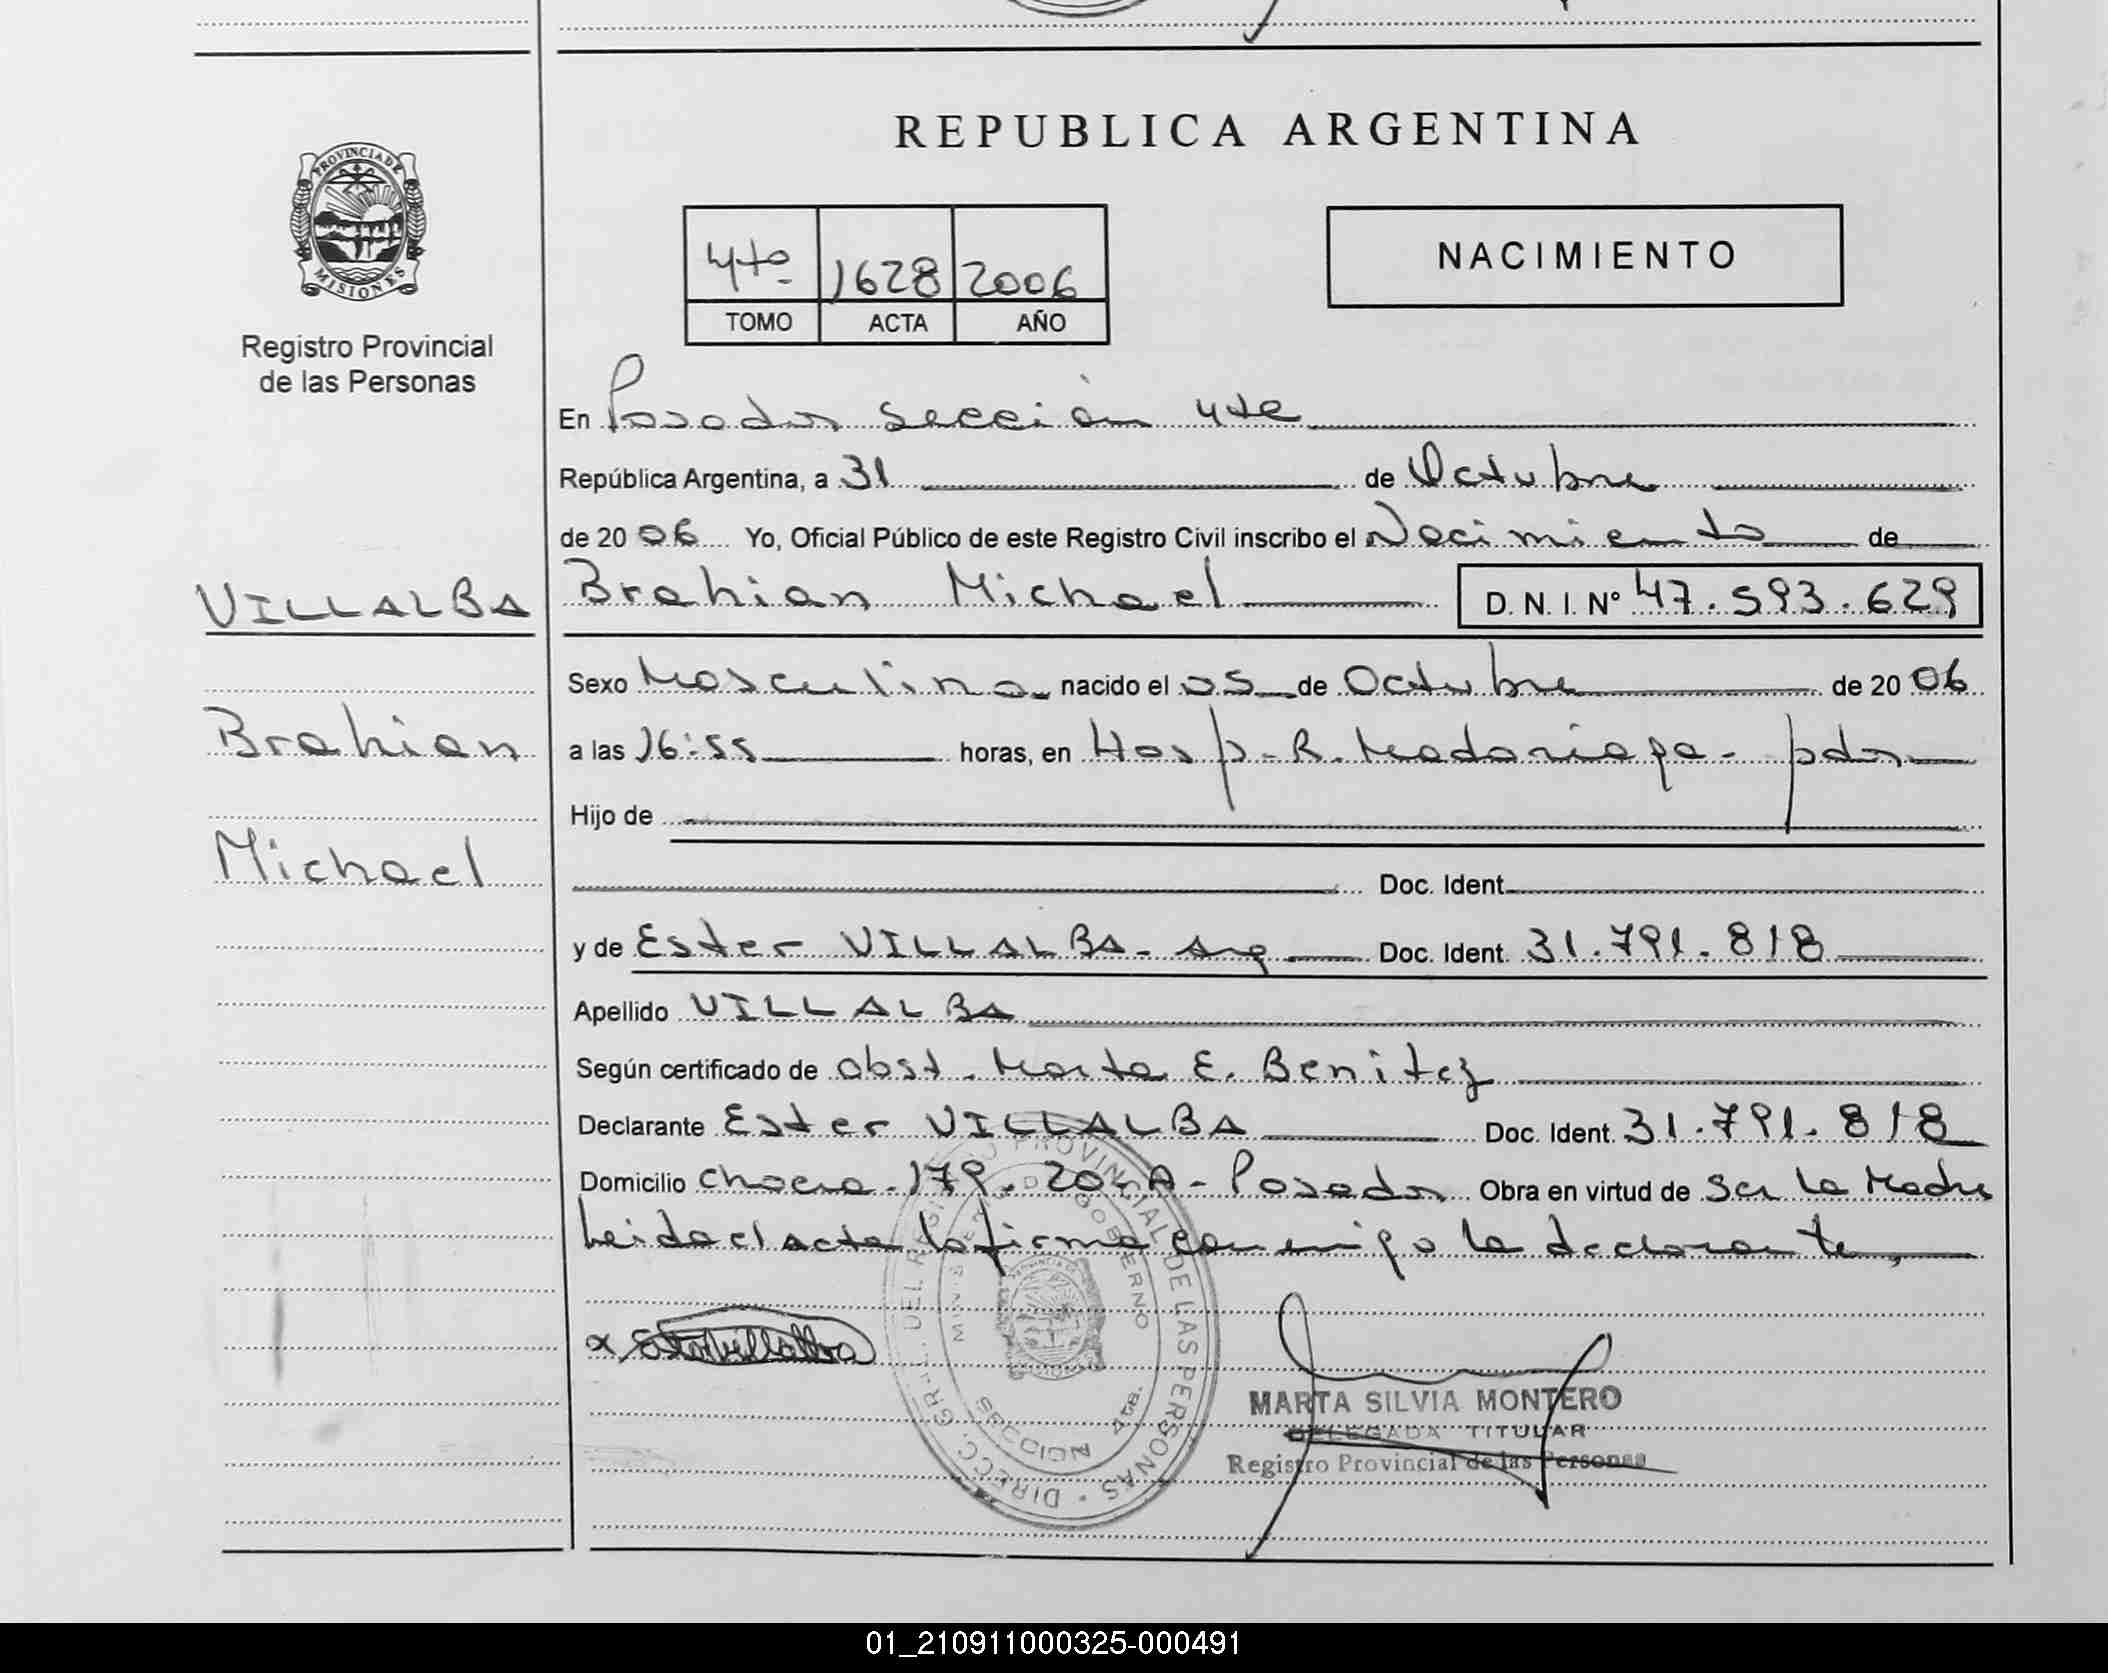 REPUBLICA ARGENTINA
PROVINCIA DE MISIONES
Registro Provincial
de las Personas
4to 1628 2006
TOMO ACTA AÑO
NACIMIENTO
En Posadas sección 4ta
República Argentina, a 31 de Octubre
de 2006 Yo, Oficial Público de este Registro Civil inscribo el Nacimiento de
VILLALBA
Brahian Michael D. N. I. Nº 47.593.629
Sexo Masculino nacido el 05 de Octubre de 2006
Brahian
a las 16:55 horas, en Hosp-R.Madariaga- pdas
Hijo de
Michael
Doc. Ident.
y de Ester VILLALBA- Arg Doc. Ident. 31.791.818
Apellido VILLALBA
Según certificado de obst. Marta E. Benitez
Declarante Ester VILLALBA Doc. Ident. 31.791.818
Domicilio Chacra.179. - Posadas Obra en virtud de ser la Madre
Leida el acta la firma conmigo la declarante,
x Ester Villalba
DIRECC. GRAL. DEL REGISTRO PROVINCIAL DE LAS PERSONAS
MINISTERIO DE GOBIERNO
MARTA SILVIA MONTERO
DELEGADA TITULAR
Registro Provincial de las Personas
01_210911000325-000491